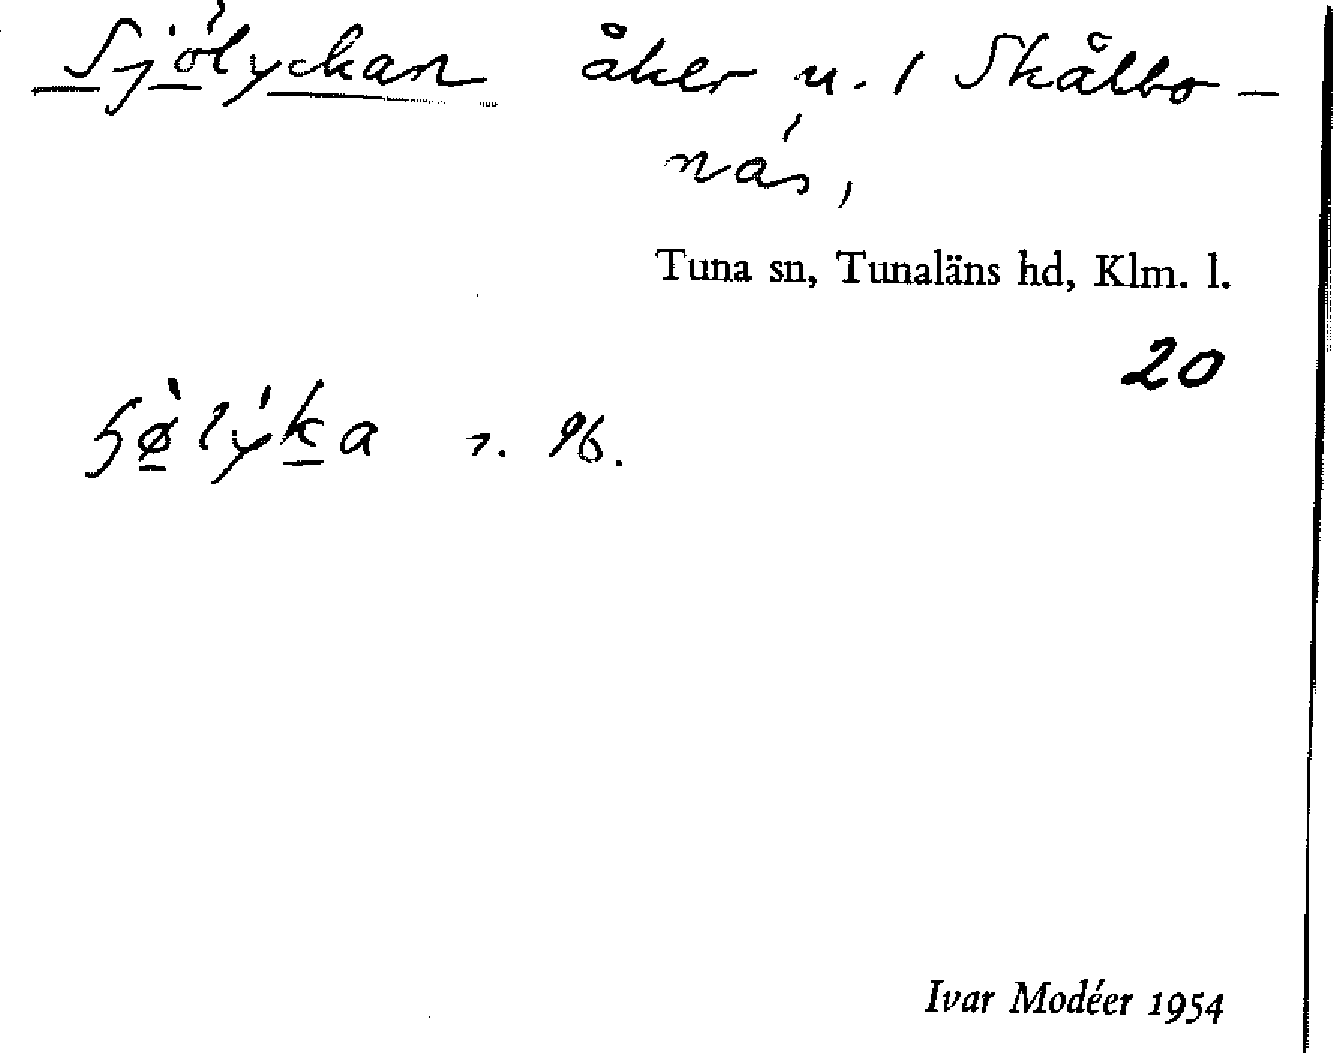 Sjölyckan åker u. 1 Skålbo-
näs,
Tuna sn, Tunaläns hd, Klm. l.
20
ɧø̀lýka
Ivar Modéer 1954